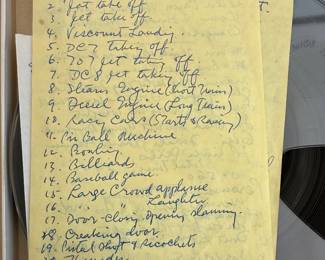 2. Jet take off
3. Jet take off.
4. Viscount Landing
5. DC7 taking off
6. 707 jet taking off
7. DC8 jet taking off
8. Steam Engine (Short Train)
9. Diesel Engine (Long Train)
10. Racing Cars (Starts & Racing)
11. Pin Ball Machine
12. Bowling
13. Billiards
14. Baseball game
15. Large Crowd applause
16. " " Laughter
17. Door-closing, opening slamming.
18. Creaking door
19. Pistol Shots & Ricochets